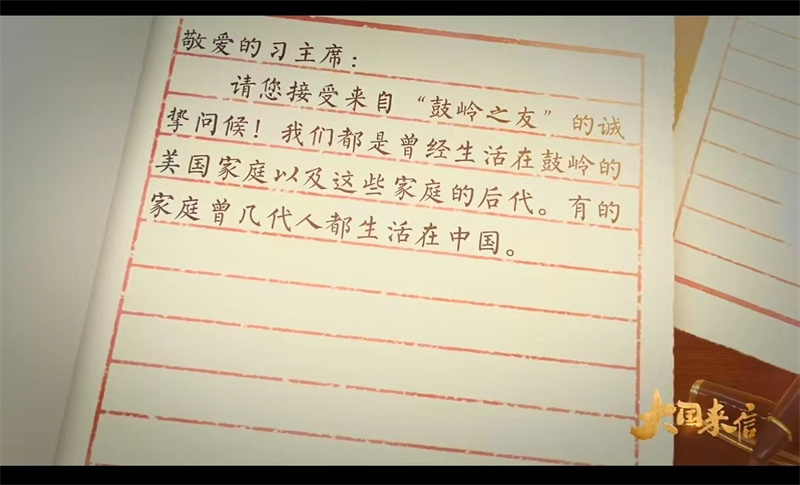 敬爱的习主席：
请您接受来自“鼓岭之友”的诚
挚问候！我们都是曾经生活在鼓岭的
美国家庭以及这些家庭的后代。有的
家庭曾几代人都生活在中国。
大国来信